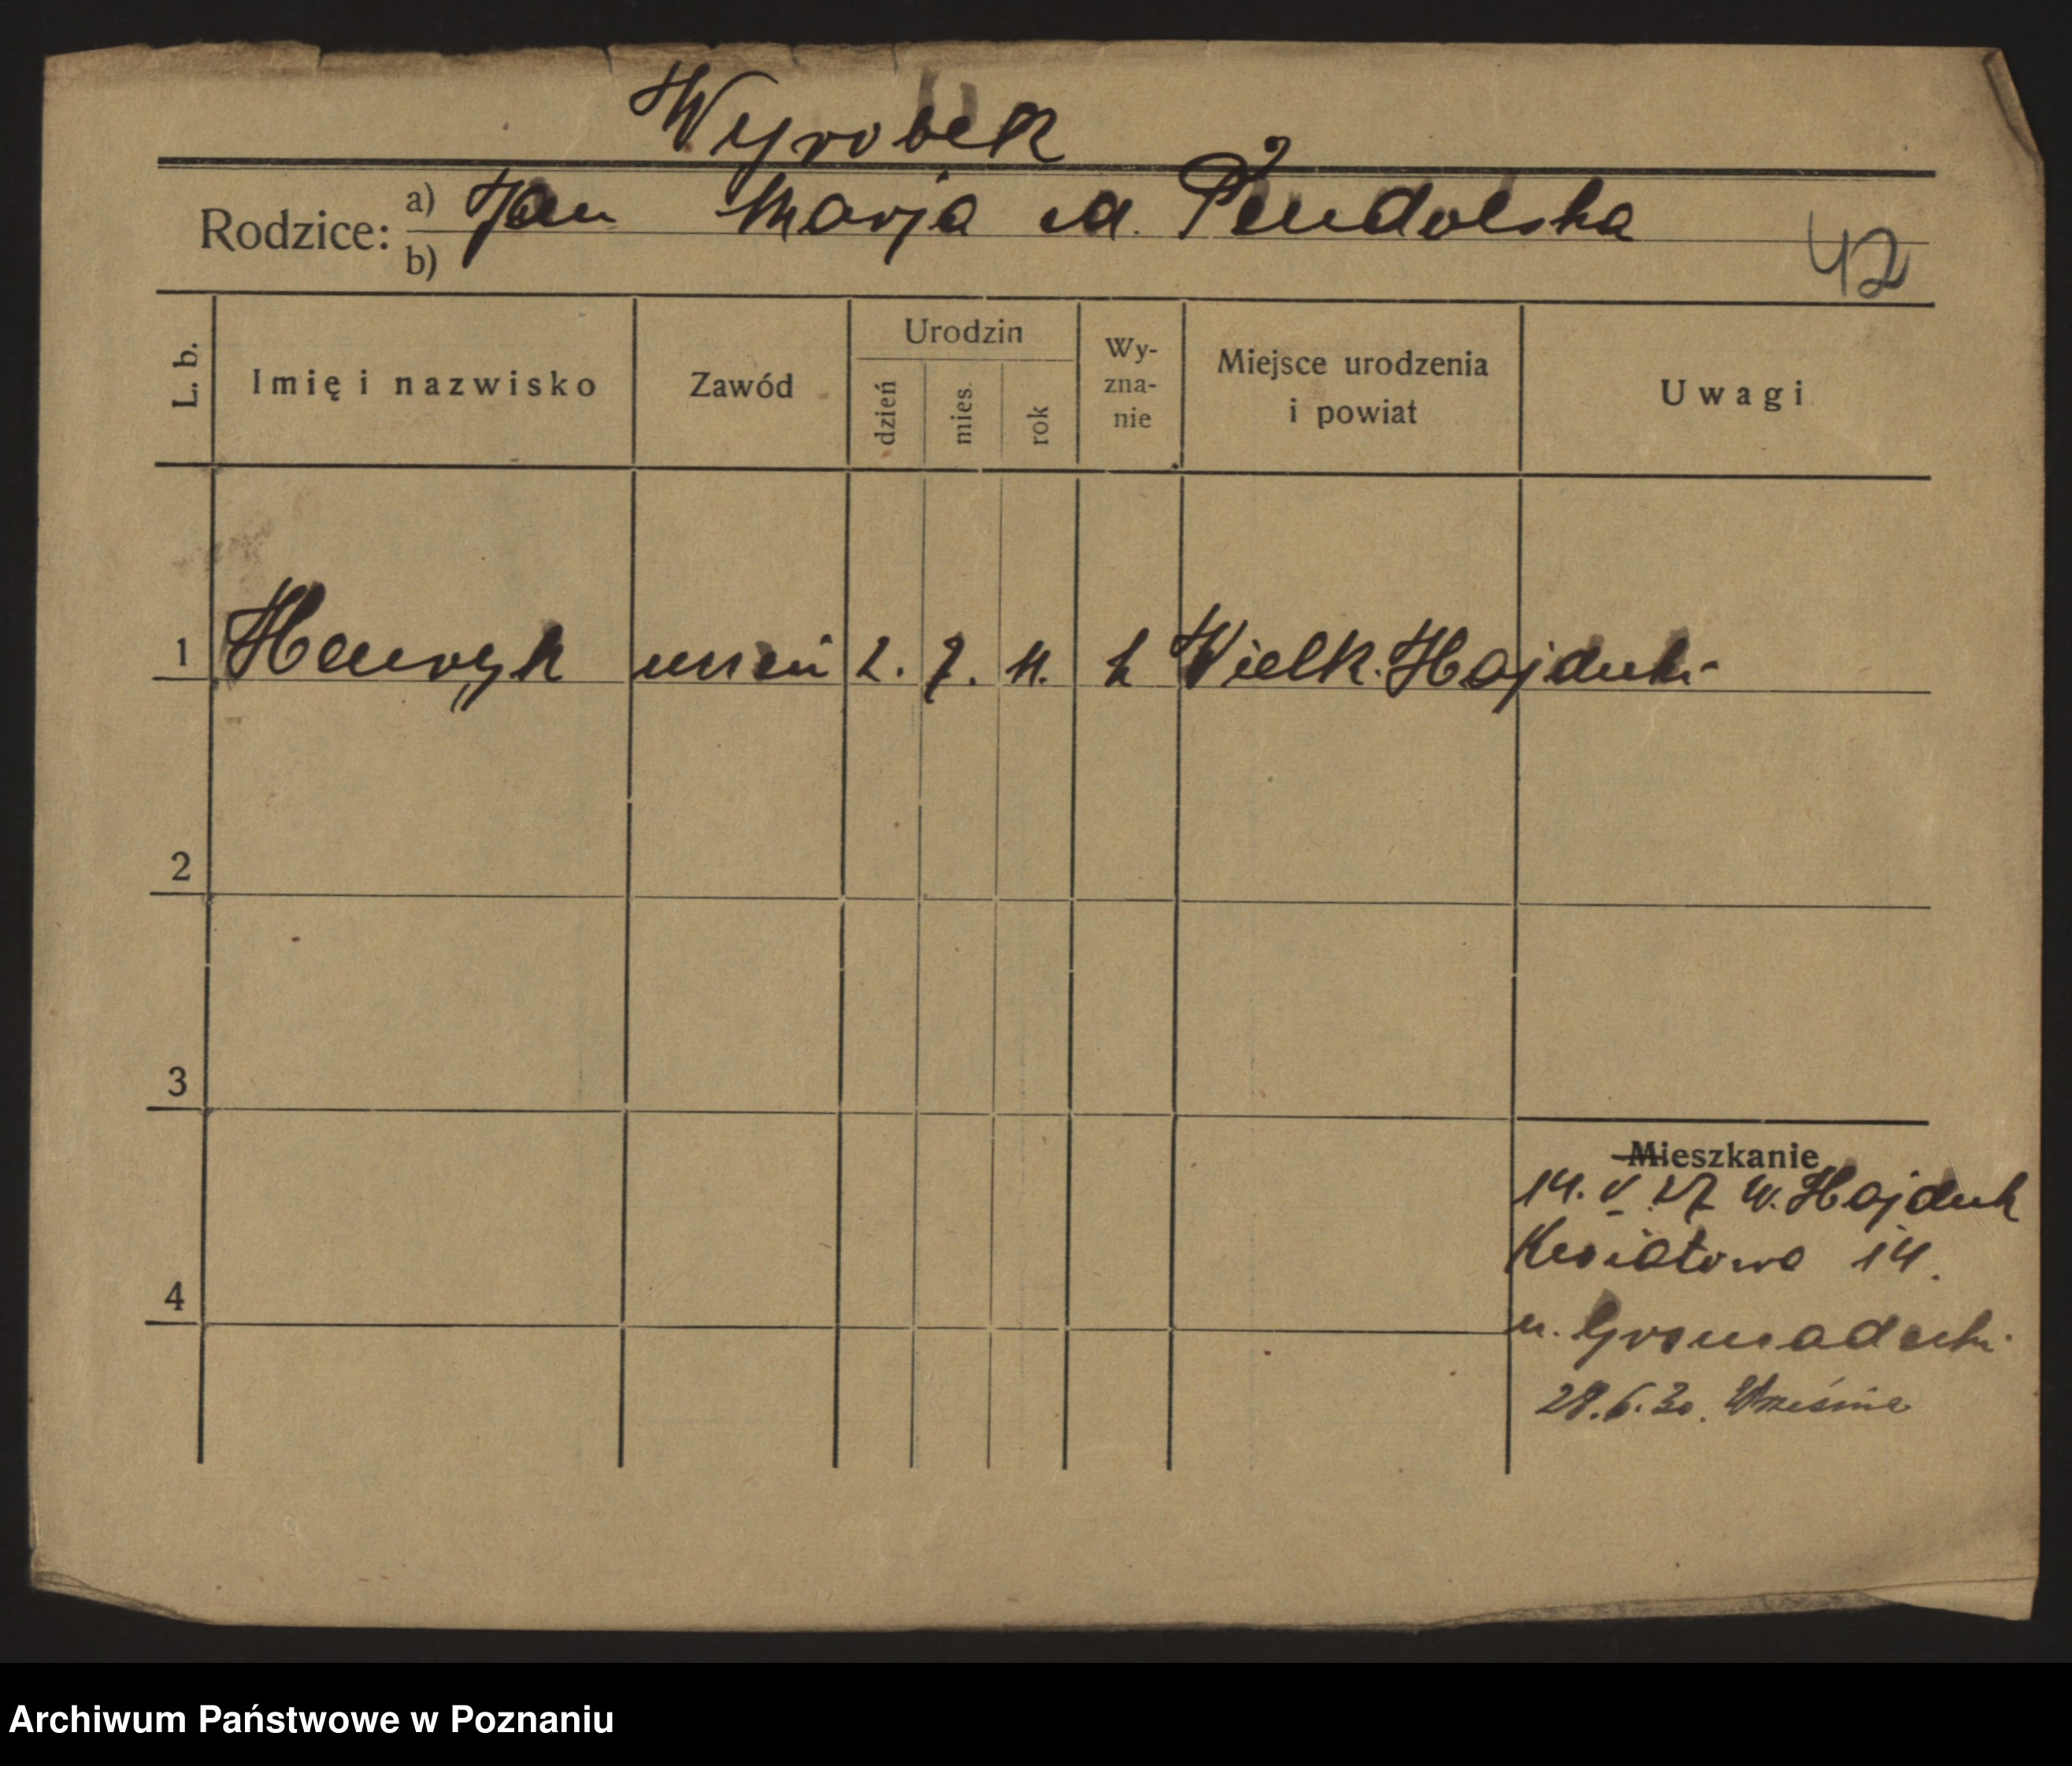 Wyrobek
Rodzice: a) Jan Marja M.
b)
42
L. b. Imię i nazwisko Zawód Urodzin dzień mies. rok Wy-zna-nie Miejsce urodzenia i powiat Uwagi
1 Henryk uczeń 2. 7. 11. k Wielk. Hajduki
2
3
4
Mieszkanie
14. V 27 W. Hajduk
Kwiatowa 14.
u. Gromadecki
28.6.30. Września
Archiwum Państwowe w Poznaniu